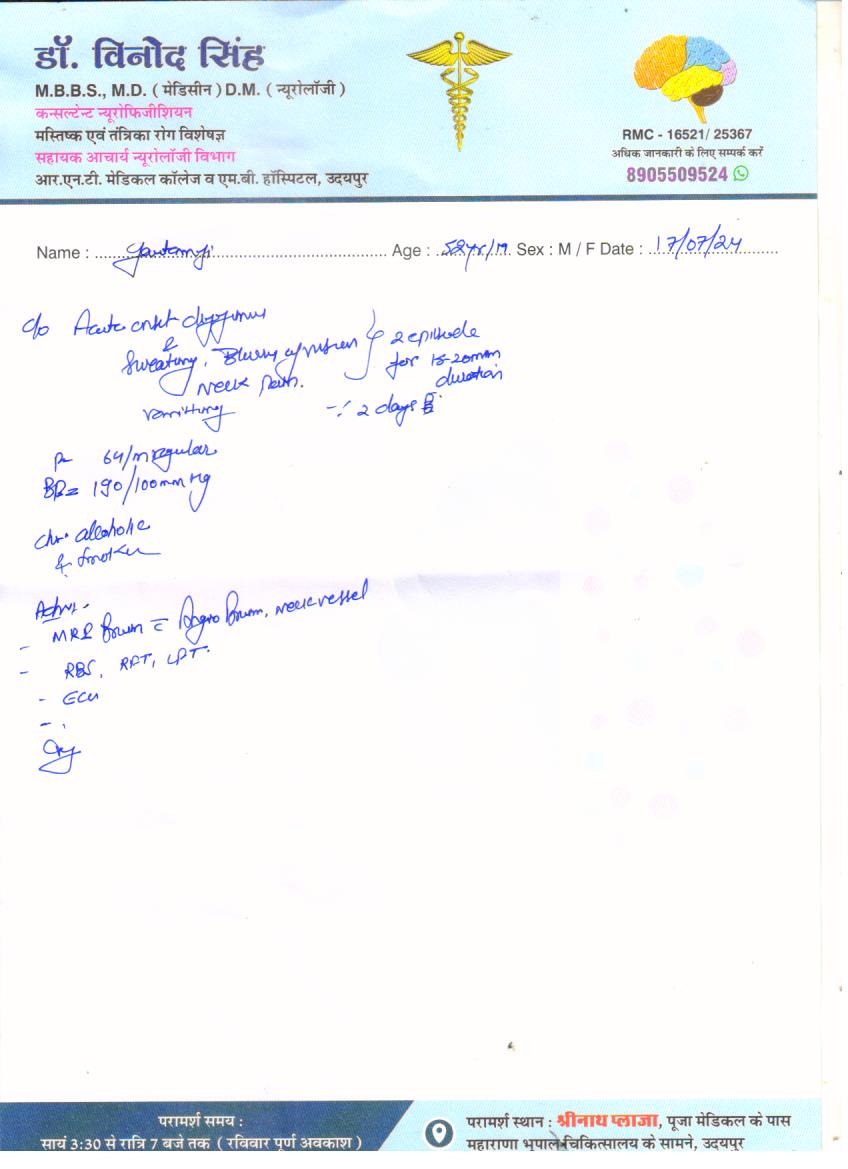 डॉ. विनोद सिंह
M.B.B.S., M.D. ( मेडिसीन ) D.M. ( न्यूरोलॉजी )
कन्सल्टेन्ट न्यूरोफिजीशियन
मस्तिष्क एवं तंत्रिका रोग विशेषज्ञ
सहायक आचार्य न्यूरोलॉजी विभाग
आर.एन.टी. मेडिकल कॉलेज व एम.बी. हॉस्पिटल, उदयपुर
RMC - 16521/ 25367
अधिक जानकारी के लिए सम्पर्क करें
8905509524
Name : Gautamji Age : 52yr/M Sex : M / F Date : 17/07/24
c/o Acute onset dizziness
&
Sweating, Blurry of vision
Neck pain.
2 episode
for 15-20min
duration
Vomitting
2 days
P- 64/m regular
BP= 190/100mm Hg
Chr. alcoholic
& smoker
Adv:-
- MRI Brain c Angio Brain, neck vessel
- RBS, RFT, LFT.
- ECG
परामर्श समय :
सायं 3:30 से रात्रि 7 बजे तक ( रविवार पूर्ण अवकाश )
परामर्श स्थान : श्रीनाथ प्लाजा, पूजा मेडिकल के पास
महाराणा भूपाल चिकित्सालय के सामने, उदयपुर